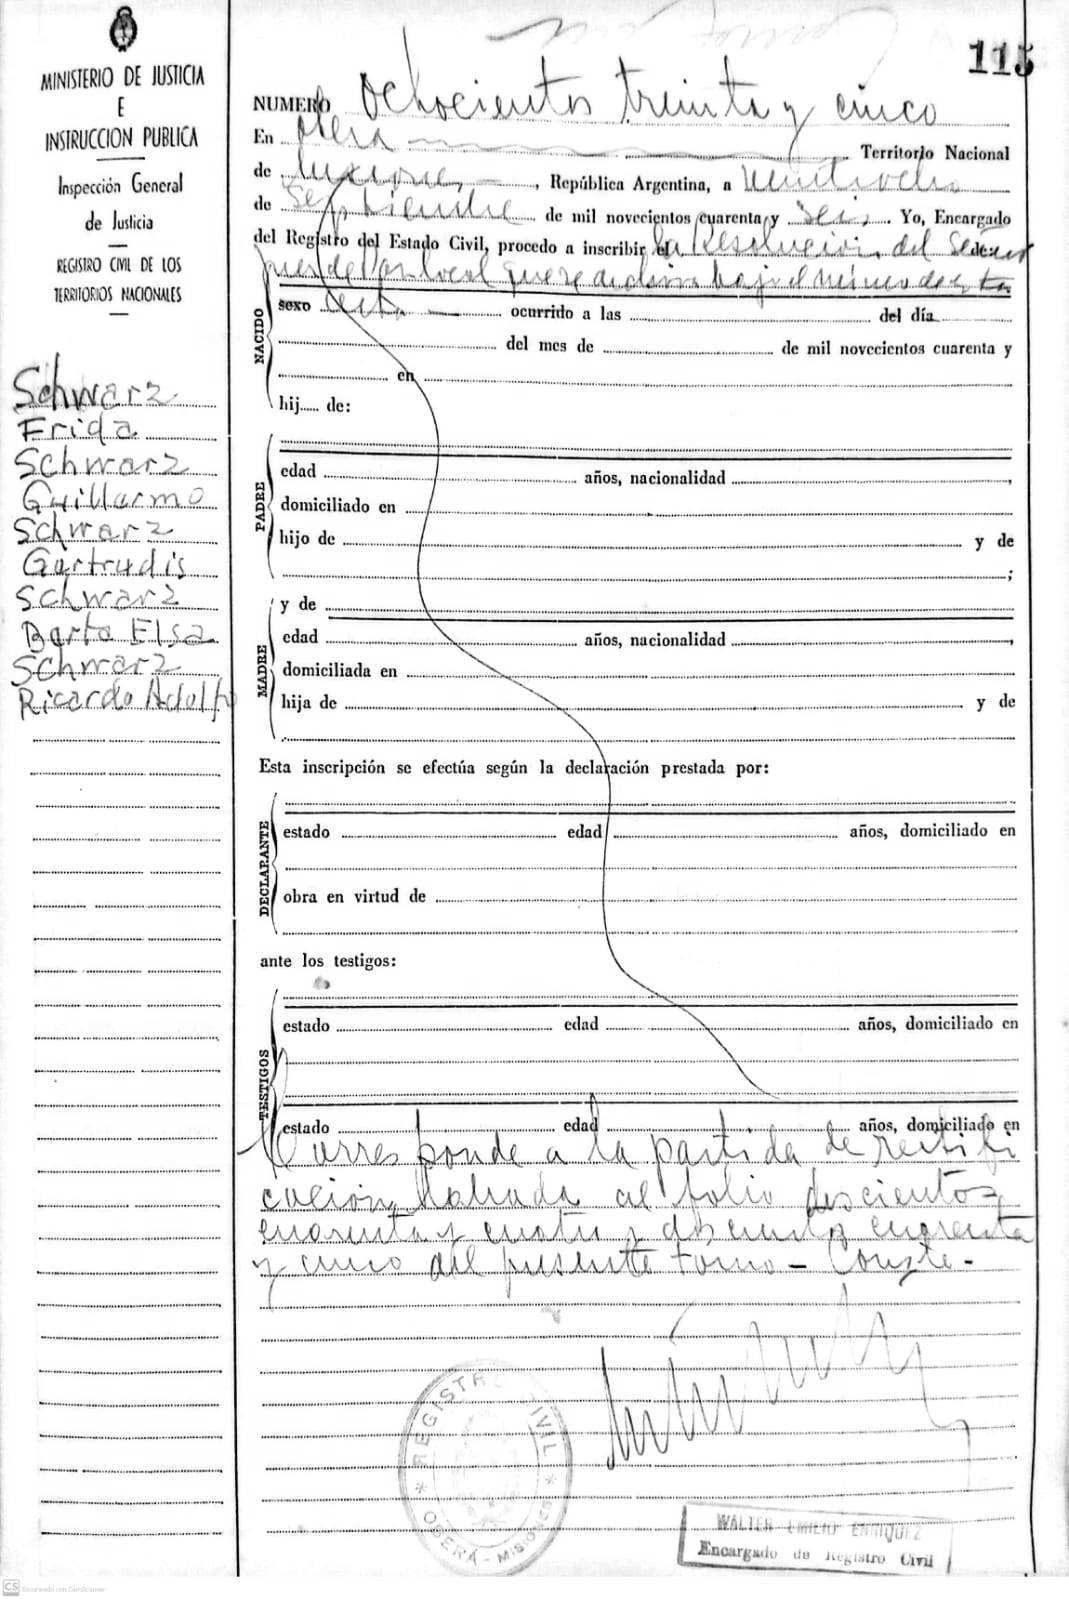 115
MINISTERIO DE JUSTICIA
E
INSTRUCCION PUBLICA
Inspección General
de Justicia
REGISTRO CIVIL DE LOS
TERRITORIOS NACIONALES
Schwarz
Frida
Schwarz
Guillermo
Schwarz
Gertrudis
Schwarz
Berta Elsa
Schwarz
Ricardo Adolfo
NUMERO Ochocientos treinta y cinco
En Oberá Territorio Nacional
de Misiones, República Argentina, a veintiocho
de Septiembre de mil novecientos cuarenta y seis. Yo, Encargado
del Registro del Estado Civil, procedo a inscribir la Resolución del Señor
juez de Paz local que se archiva bajo el número de esta
sexo acta ocurrido a las del día
del mes de de mil novecientos cuarenta y
en
hij de:
NACIDO
PADRE
edad años, nacionalidad ,
domiciliado en
hijo de y de
;
MADRE
y de
edad años, nacionalidad ,
domiciliada en
hija de y de
Esta inscripción se efectúa según la declaración prestada por:
DECLARANTE
estado edad años, domiciliado en
obra en virtud de
ante los testigos:
TESTIGOS
estado edad años, domiciliado en
estado edad años, domiciliado en
Corresponde a la partida de rectifi
cación, labrada al folio doscientos
cuarenta y cuatro y doscientos cuarenta
y cinco del presente tomo - Conste -
* REGISTRO CIVIL *
OBERÁ - MISIONES
WALTER EMILIO ENRIQUEZ
Encargado de Registro Civil
CS Escaneado con CamScanner